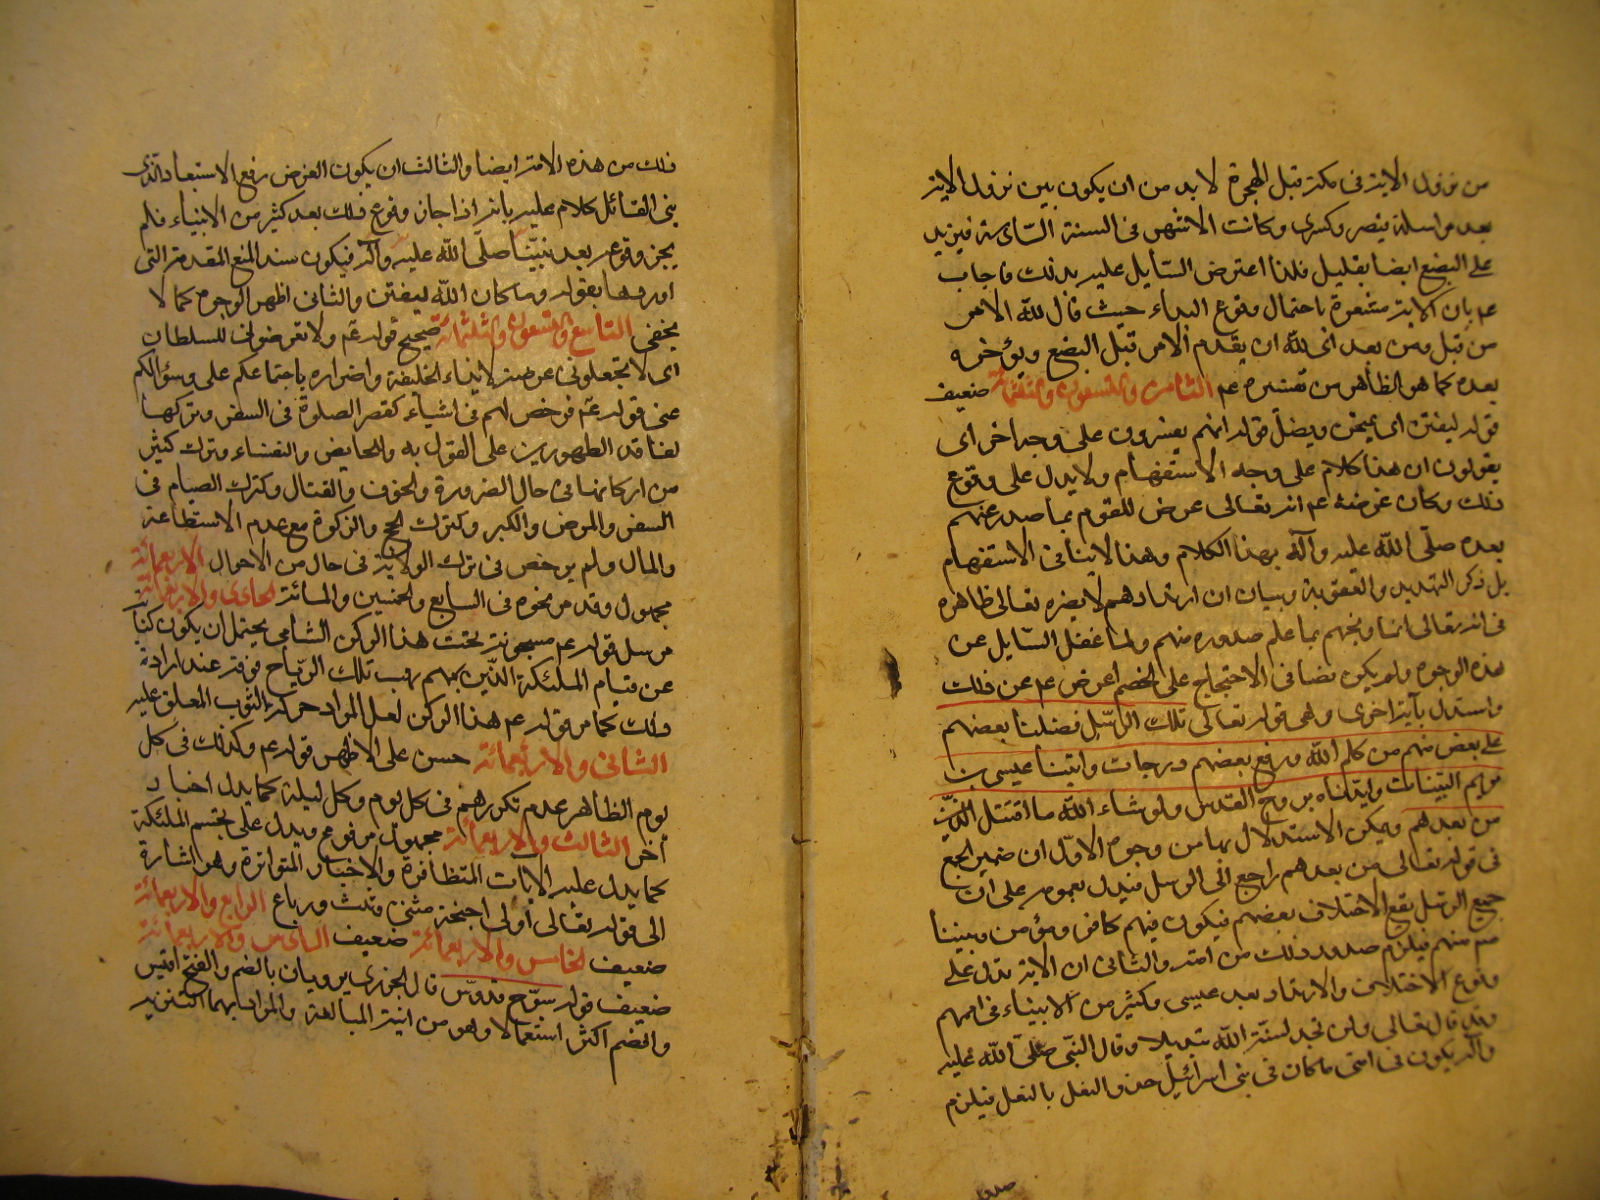 من نزول الاية في مكة قبل الهجرة لا بد من ان يكون بين نزول الاية
بعد مراسلة قيصر وكسرى وكانت الاشهر في السنة السادسة فيزيد
على البضع ايضا بقليل فلذا اعترض السايل عليه بذلك فاجاب
عم بان الاية مشعرة باحتمال وقوع البداء حيث قال لله الامر
من قبل ومن بعد اى لله ان يقدم الامر قبل البضع ويؤخره
بعده كما هو الظاهر من تفسيره عم الثامن والتسعون والثلثمائة ضعيف
قوله ليفتن اى يمتحن ويضل قوله انهم يفسرون على وجه اخر اى
يقولون ان هذا كلام على وجه الاستفهام ولا يدل على وقوع
ذلك وكان غرضه عم انه تعالى عرض للقوم بما صدر عنهم
بعده صلى الله عليه وآله بهذا الكلام وهذا لا ينافي الاستفهام
بل ذكر التهديد والعقوبة وبيان ان ارتدادهم لا يضره تعالى ظاهره
في انه تعالى انما وبخهم بما علم صدوره منهم ولما غفل السايل عن
هذه الوجوه ولم يكن نصا في الاحتجاج على الخصم اعرض عم عن ذلك
واستدل بآية اخرى وهى قوله تعالى تلك الرسل فضلنا بعضهم
على بعض منهم من كلم الله ورفع بعضهم درجات واتينا عيسى بن
مريم البينات وايدناه بروح القدس ولو شاء الله ما اقتتل الذين
من بعدهم ويمكن الاستدلال بها من وجوه الاول ان ضمير الجمع
في قوله تعالى من بعدهم راجع الى الرسل فيدل بعمومه على ان
جميع الرسل يقع الاختلاف بعضهم فيكون فيهم كافر ومؤمن ونبينا
صم منهم فيلزم صدور ذلك من امته والثانى ان الاية تدل على
وقوع الاختلاف والارتداد بعد عيسى وكثير من الانبياء في اممهم
وقد قال تعالى ولن تجد لسنة الله تبديلا وقال النبى صلى الله عليه
وآله يكون في امتى ما كان في بنى اسرائيل حذو النعل بالنعل فيلزم
صدور
ذلك من هذه الامة ايضا والثالث ان يكون الغرض رفع الاستبعاد الذى
بنى القائل كلامه عليه بانه اذا جاز وقوع ذلك بعد كثير من الانبياء فلم
يجز وقوعه بعد نبينا صلى الله عليه وآله فيكون سند المنع المقدمة التى
اوردها بقوله وما كان الله ليفتن والثانى اظهر الوجوه كما لا
يخفى التاسع والتسعون والثلثمائة صحيح قوله عم ولا تعرضونى للسلطان
اى لا تجعلونى عرضة لايذاء الخليفة واضراره باجتماعكم على وسؤالكم
عنى قوله عم فرخص لهم في اشياء كقصر الصلوة في السفر وتركها
لفاقد الطهورين على القول به والحايض والنفساء وترك كثير
من اركانها في حال الضرورة والخوف والقتال وكترك الصيام في
السفر والمرض والكبر وكترك الحج والزكوة مع عدم الاستطاعة
والمال ولم يرخص في ترك الولاية في حال من الاحوال الاربعمائة
مجهول وقد مر نحوه في السابع والخمسين والمائة الحادى والاربعمائة
مرسل قوله عم مسجونة تحت هذا الركن الشامى يحتمل ان يكون كناية
عن قيام الملئكة الذين بهم تهب تلك الرياح فوقه عند ارادة
ذلك كما مر قوله عم هذا الركن لعل المراد حركة الثوب المعلق عليه
الثانى والاربعمائة حسن على الاظهر قوله عم وكذلك في كل
يوم الظاهر عدم تكررهم في كل يوم وكل ليلة كما يدل اخبار
أخر الثالث والاربعمائة مجهول مرفوع ويدل على تجسم الملئكة
كما يدل عليه الايات المتظافرة والاخبار المتواترة وهو اشارة
الى قوله تعالى أولى اجنحة مثنى وثلث ورباع الرابع والاربعمائة
ضعيف الخامس والاربعمائة ضعيف السادس والاربعمائة
ضعيف قوله سبوح قدوس قال الجزرى يرويان بالضم والفتح اقيس
والضم اكثر استعمالا وهو من ابنية المبالغة والمراد بهما التنزيه